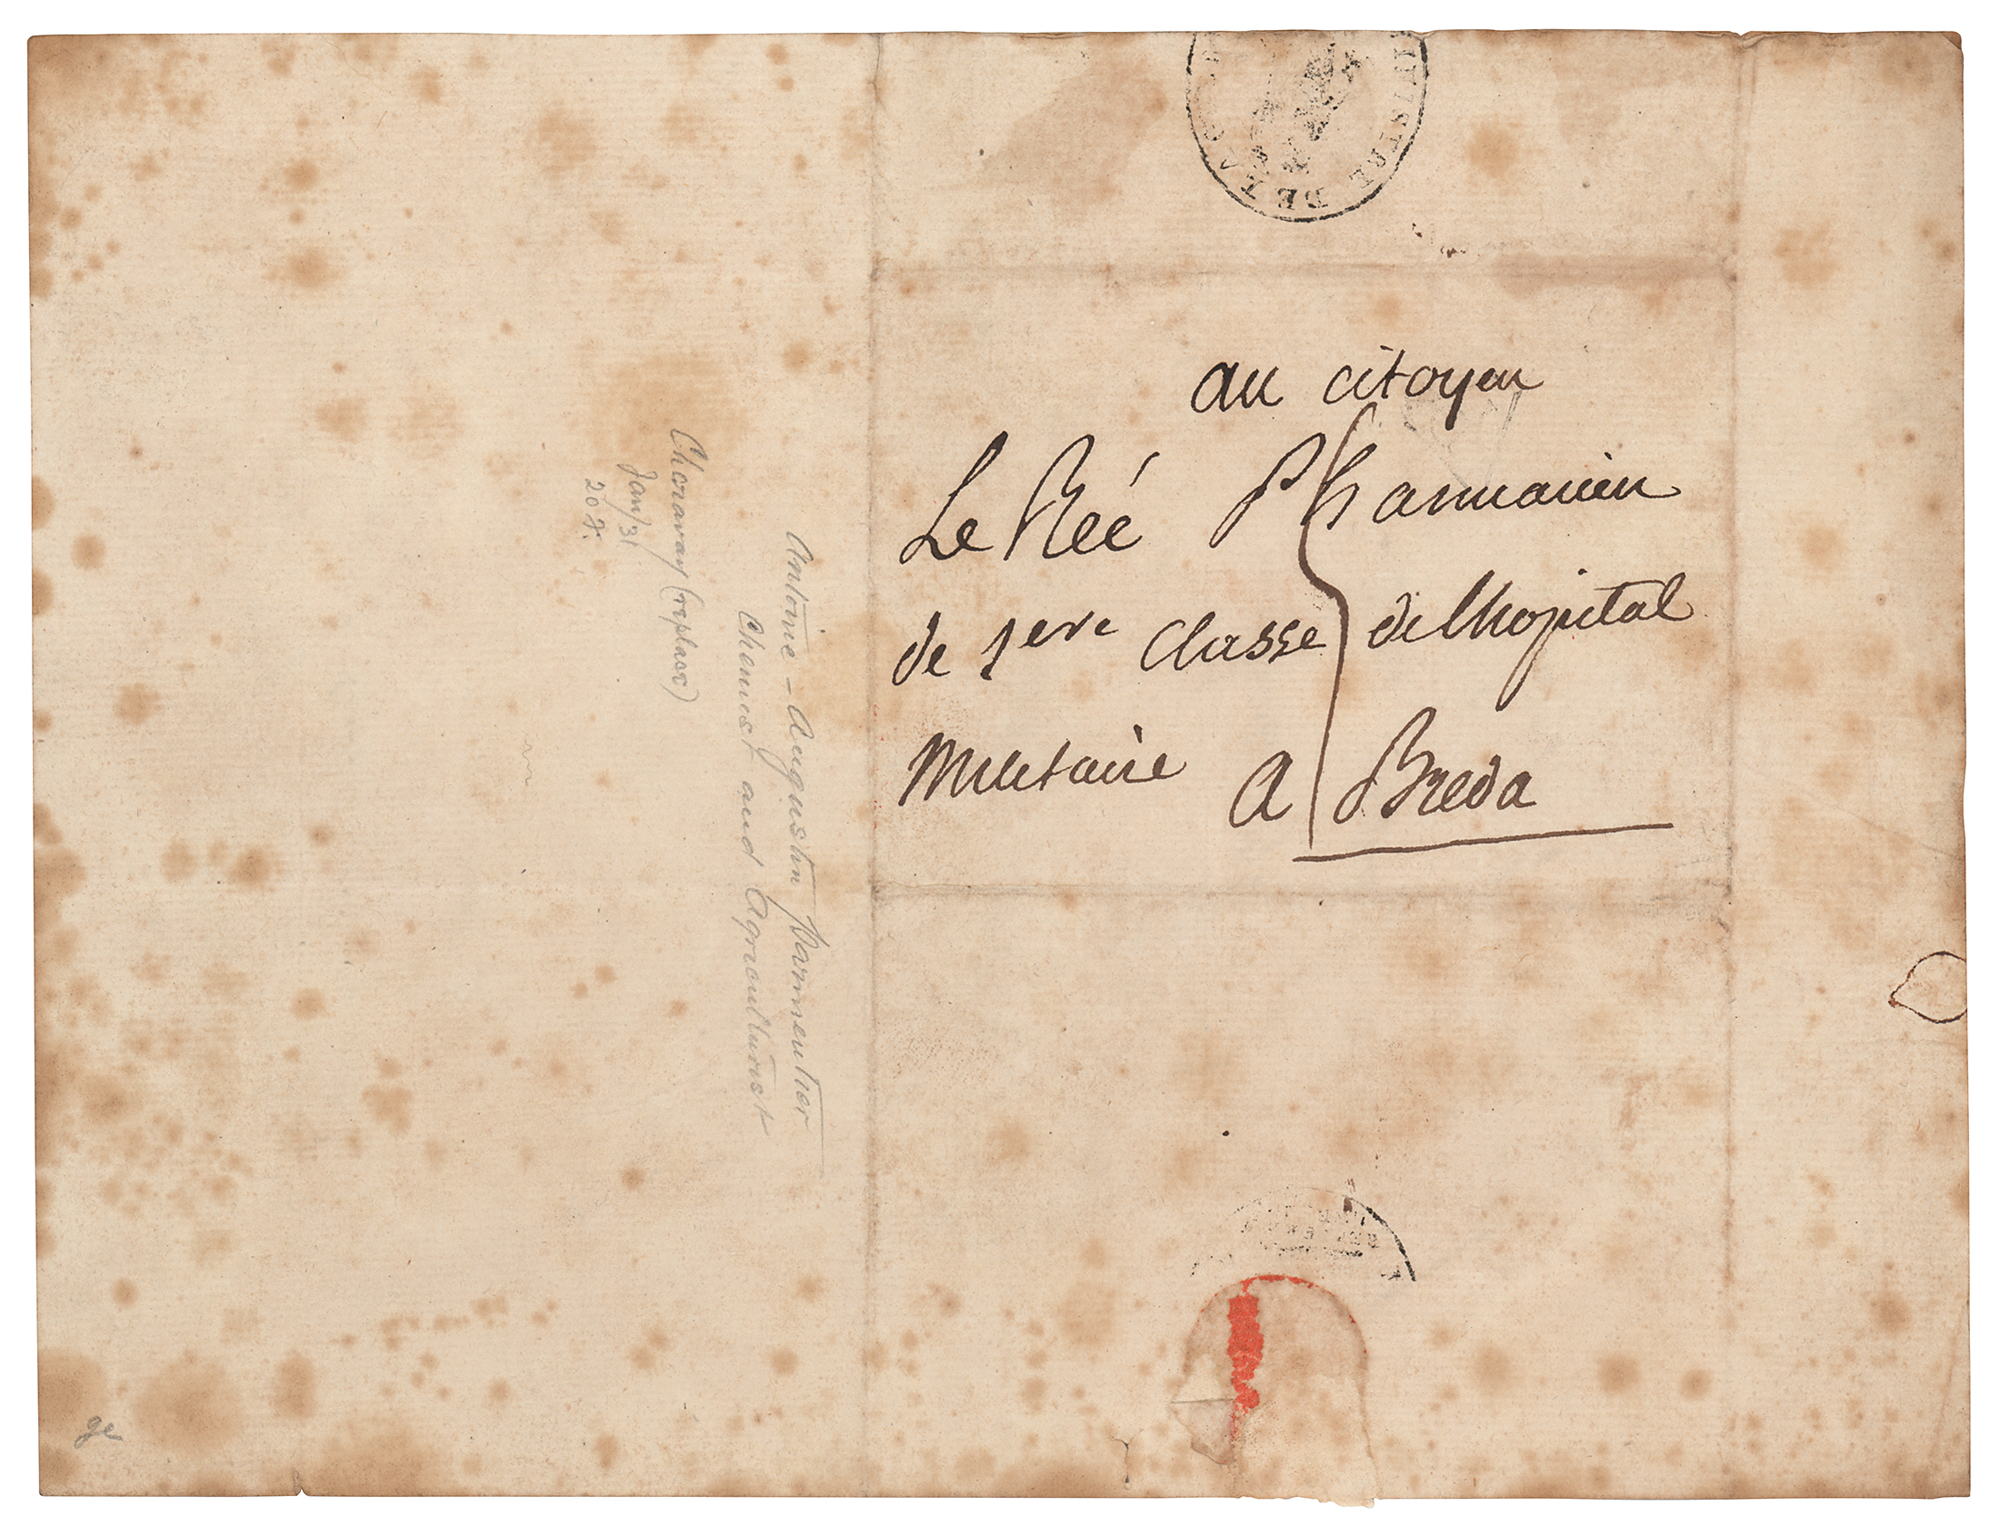 au citoyen
Le Réé Pharmacien
de 1ere classe de lhopital
Militaire a Breda
Antoine-Augustin Parmentier
Chemist and Agriculturist
Charavay (replace)
Jan/31
20 fr.
MINISTRE DE LA G
ge